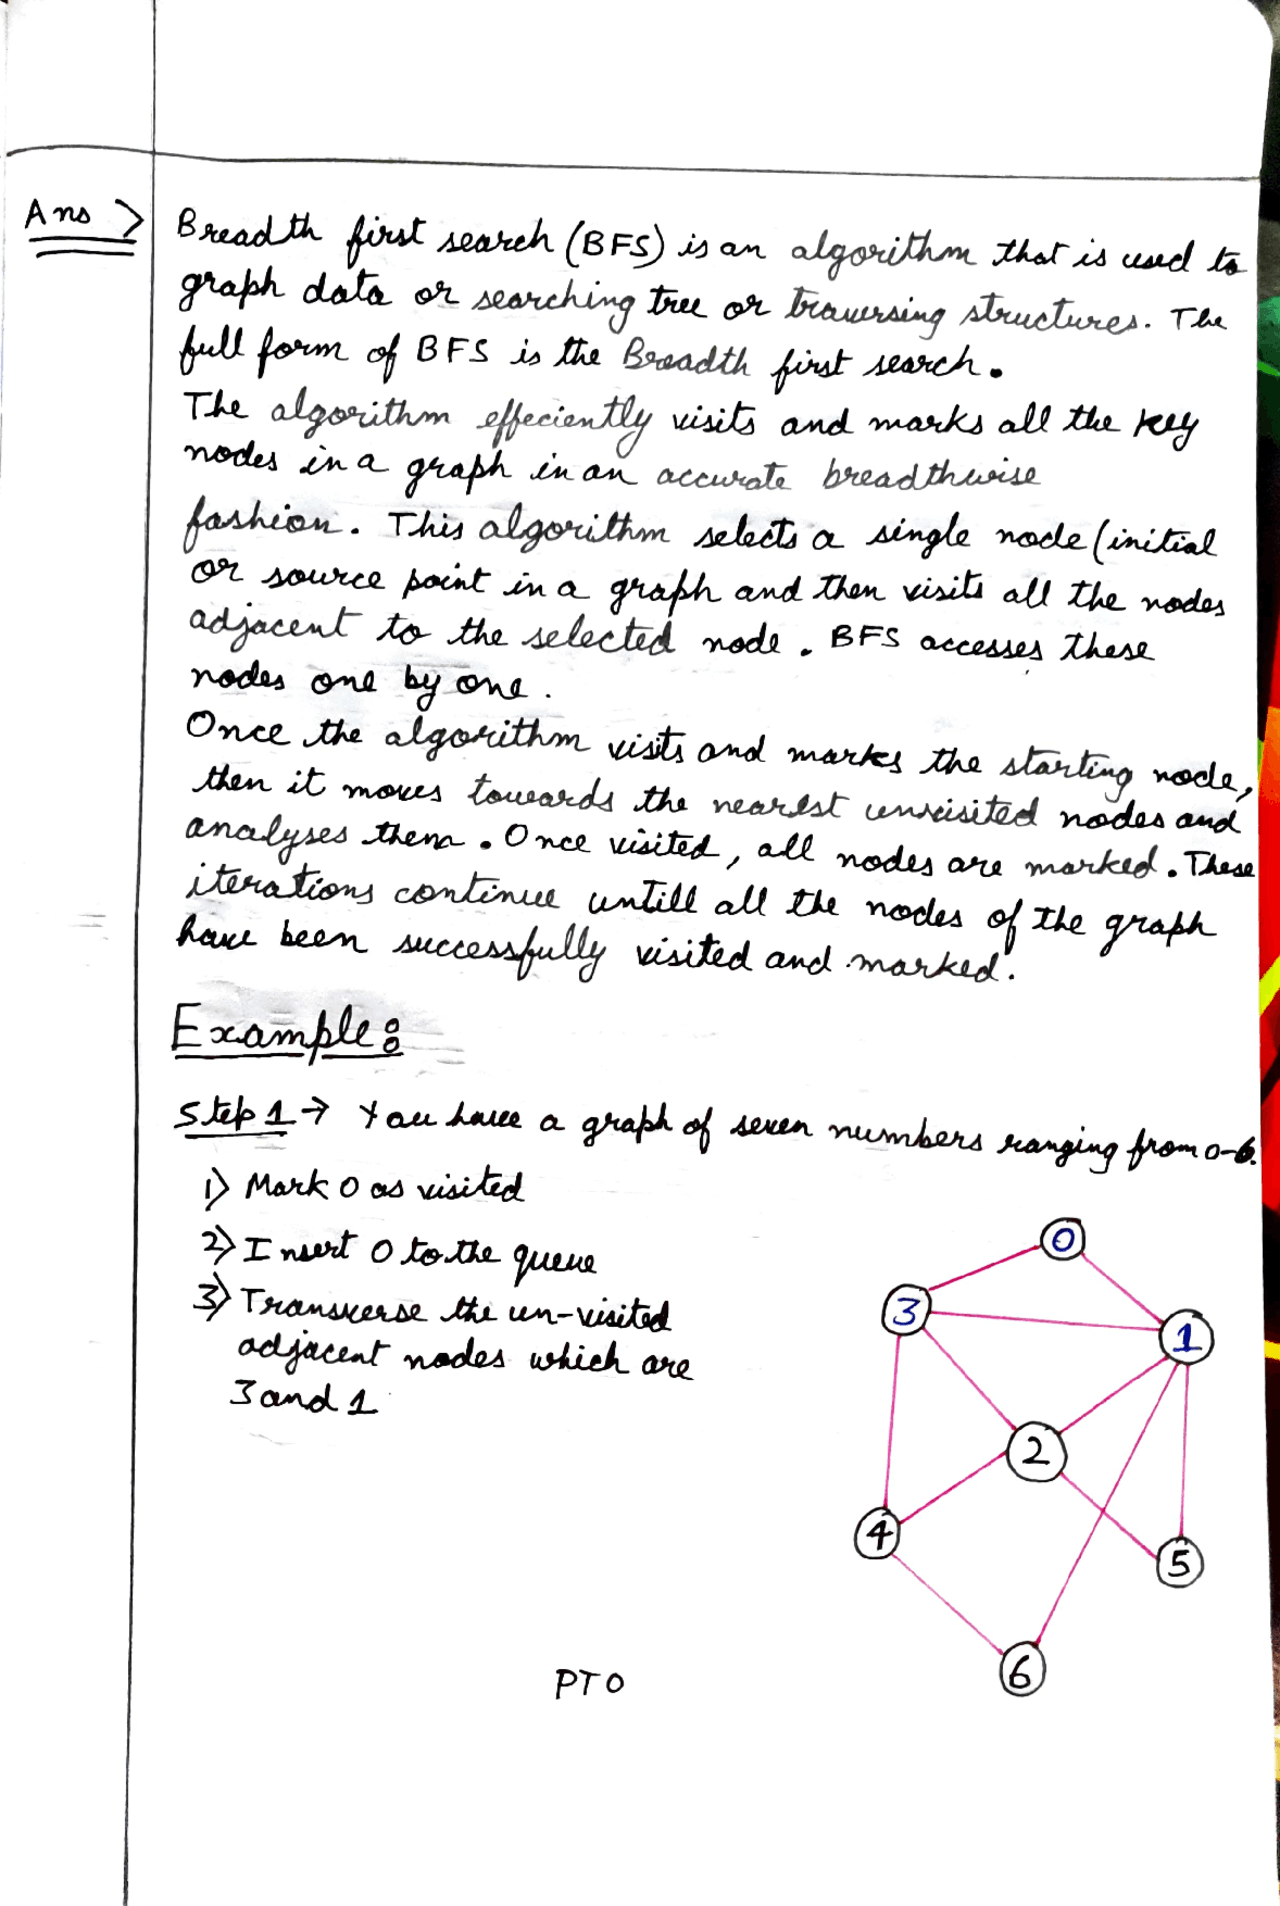 Ans >
Breadth first search (BFS) is an algorithm that is used to
graph data or searching tree or traversing structures. The
full form of BFS is the Breadth first search.
The algorithm effeciently visits and marks all the key
nodes in a graph in an accurate breadthwise
fashion. This algorithm selects a single node (initial
or source point in a graph and then visits all the nodes
adjacent to the selected node. BFS accesses these
nodes one by one.
Once the algorithm visits and marks the starting node,
then it moves towards the nearest unvisited nodes and
analyses them. Once visited, all nodes are marked. These
iterations continue untill all the nodes of the graph
have been successfully visited and marked.
Example:
Step 1 → You have a graph of seven numbers ranging from 0-6.
1) Mark 0 as visited
2) Insert 0 to the queue
3) Transverse the un-visited
adjacent nodes which are
3 and 1
0
3
1
2
4
5
6
PTO